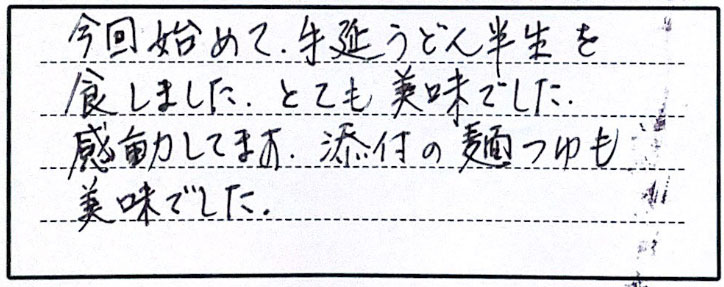 今回始めて.手延うどん半生を
食しました.とても美味でした.
感動してます.添付の麺つゆも
美味でした.